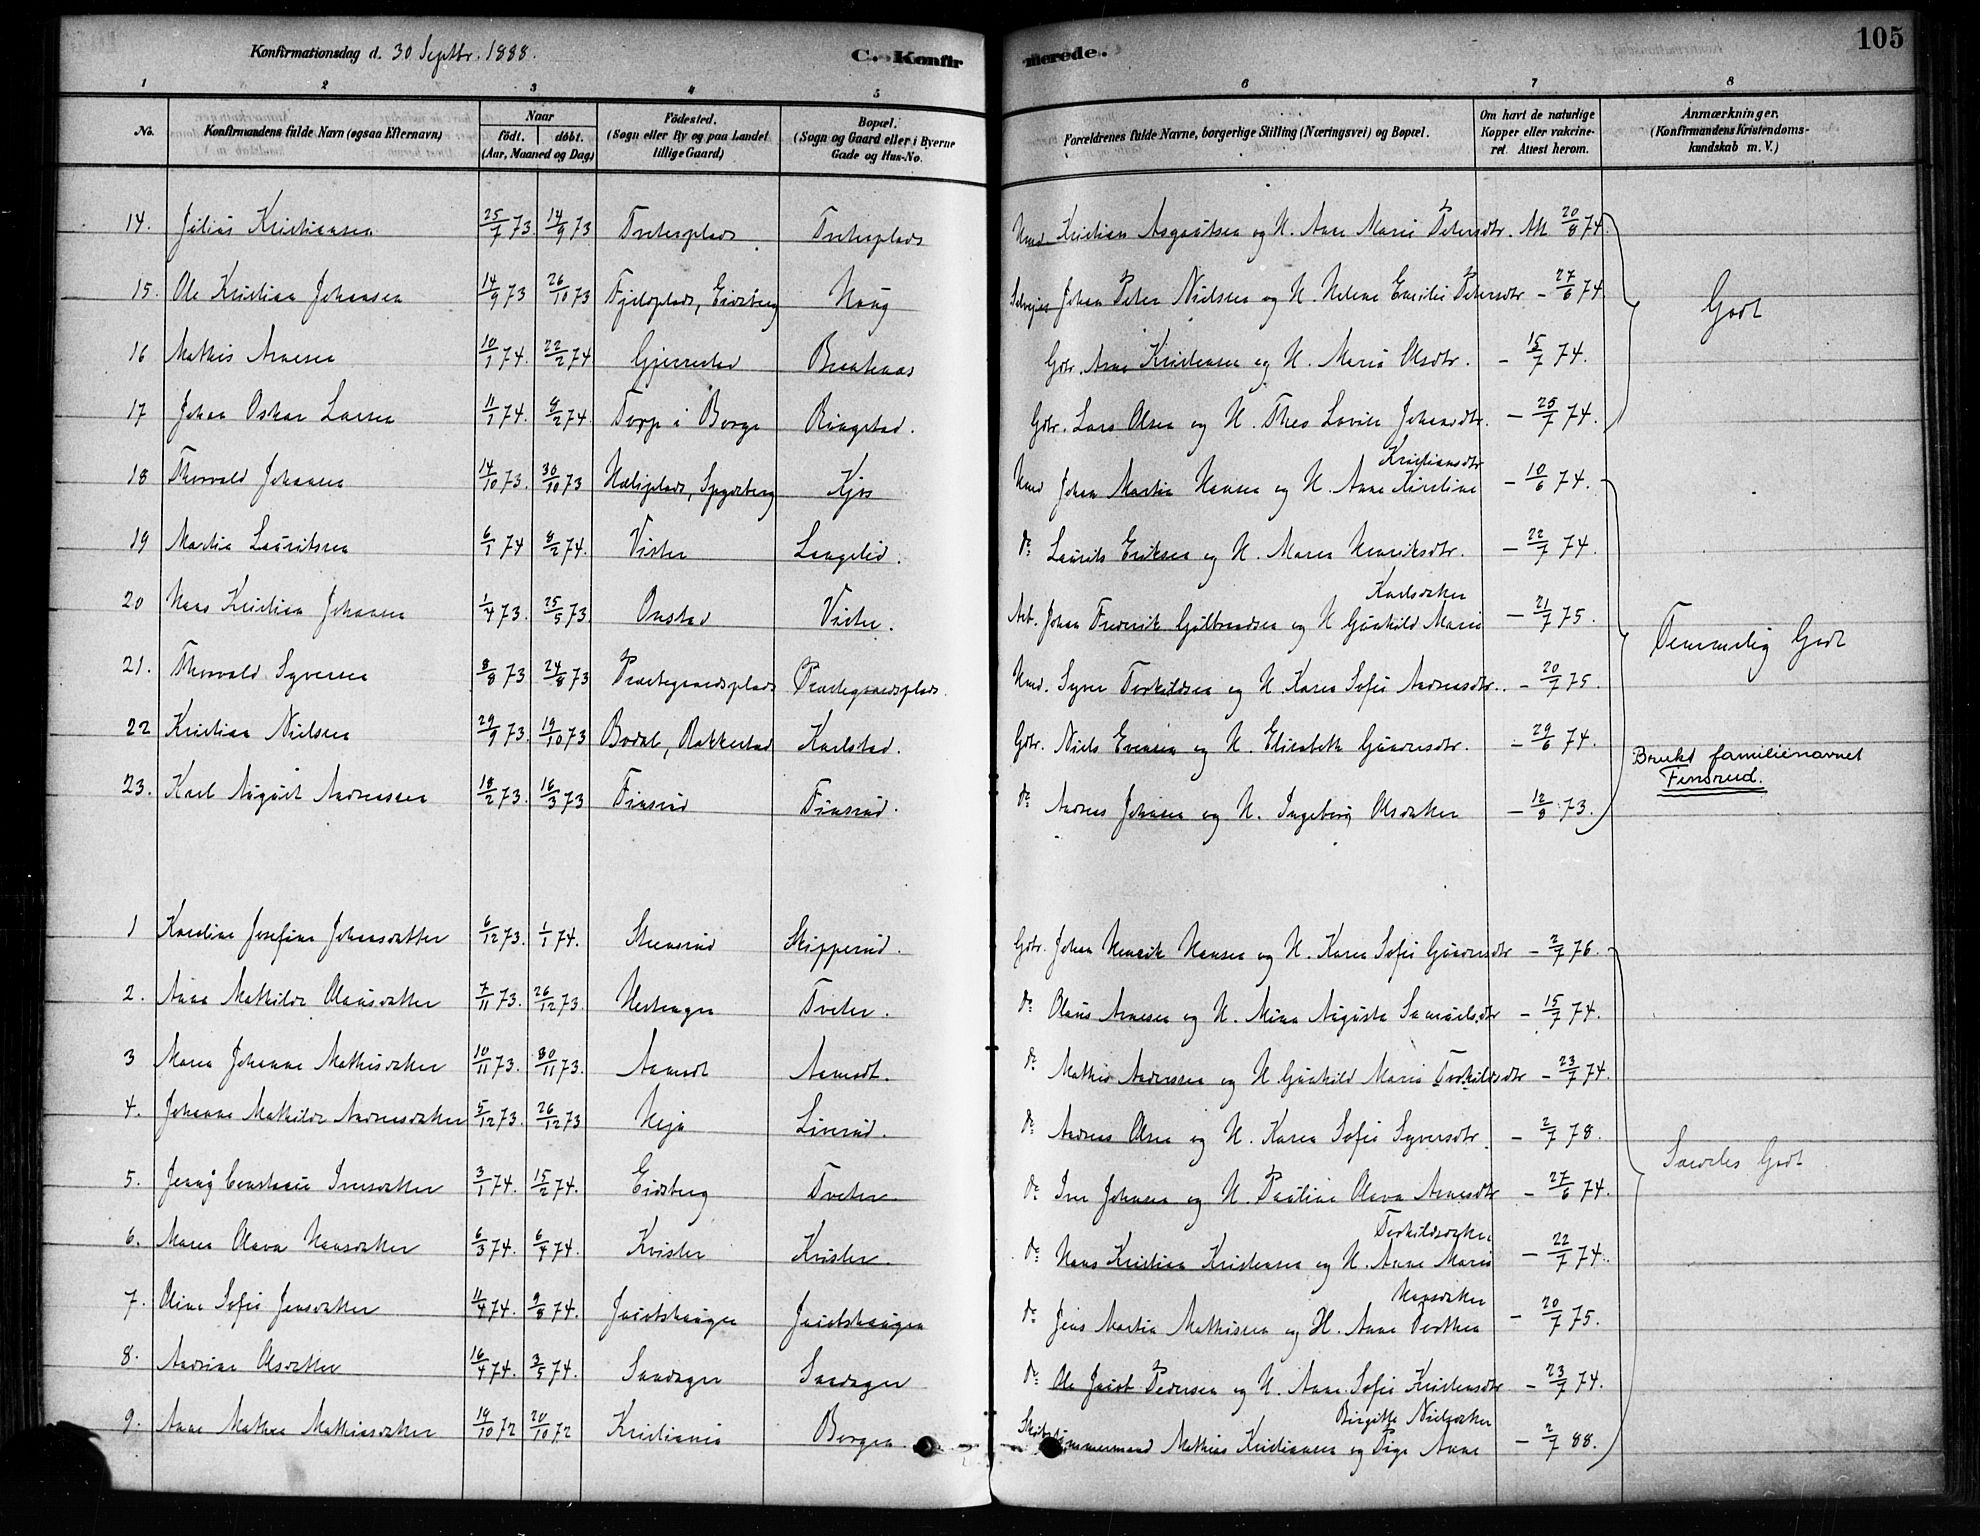 Konfirmationsdag d. 30 Septbr. 1888.
C. Konfirmerede.
105
1 2 3 4 5 6 7 8
No. | Konfirmandens fulde Navn (ogsaa Efternavn) | Naar født. døbt. (Aar, Maaned og Dag) | Fødested. (Sogn eller By og paa Landet tillige Gaard) | Bopæl. (Sogn og Gaard eller i Byerne Gade og Hus-No. | Forældrenes fulde Navne, borgerlige Stilling (Næringsvei) og Bopæl. | Om havt de naturlige Kopper eller vakcineret. Attest herom. | Anmærkninger. (Konfirmandens Kristendomskundskab m. V.)
14. Julius Kristiansen 25/7 73. 14/9 73 Tveterplads Tveterplads Hmd. Kristian Asgautsen og H. Anne Marie Petersdtr. Att. 20/8 74.
15. Ole Kristian Johansen 14/9 73 26/10 73 Fjeldplads, Eidsberg Haug Selveier Johan Peter Nielsen og H. Helene Emilie Petersdtr - 27/6 74. Godt
16 Mathis Arnesen 10/1 74. 22/2 74 Gjerrestad Braatenaas Gdr. Arne Kristensen og H. Marie Olsdtr. - 15/7 74.
17 Johan Oskar Larsen 11/1 74. 9/2 74. Torp i Borge Ringstad. Gdr. Lars Olsen og H. Thea Lovise Johansdtr. - 25/7 74.
18 Thorvald Johansen 14/10 73. 30/10 73 Heliplads, Spydeberg Kjos Hmd Johan Martin Hansen og H. Anne Kirstine Kristiansdtr - 10/6 74.
19 Martin Lauritsen 6/1 74 8/2 74. Vister Langelid. do Laurits Eriksen og H. Maren Henriksdtr. - 22/7 74.
20 Hans Kristian Johansen 1/4 73. 25/5 73. Onstad Vister. Arb. Johan Frederik Gulbrandsen og H Gunhild Marie Karlsdatter - 21/7 75.
21. Thorvald Syversen 8/8 73 24/8 73 Præstegaardsplads Præstegaardsplads. Hmd. Syver Torkildsen og H. Karen Sofie Andreasdtr. - 20/7 75. Temmelig Godt
22 Kristian Nielsen 29/9 73. 19/10 73 Bodal, Rakkestad Karlstad. Gdr. Niels Evensen og H. Elisabeth Gundersdtr. - 29/6 74.
23. Karl August Andreassen 18/2 73. 16/3 73 Finsrud Finsrud. do Andreas Johnsen og H. Ingeborg Olsdatter - 12/8 73. Brukt familienavnet
Finsrud.
1 Karoline Josefine Johansdatter 6/12 73. 1/1 74. Steensrud Skipperud. Gdr. Johan Henrik Hansen og H. Karen Sofie Gundersdtr - 2/7 76.
2. Anna Mathilde Olausdatter 7/11 73. 26/12 73. Hestengen Tveter. do Olaus Arnesen og H. Mina Augusta Samuelsdtr - 15/7 74.
3 Maren Johanne Mathisdatter 10/11 73. 30/11 73. Aamodt Aamodt. do Mathis Andersen og H. Gunhild Marie Torkildsdtr - 23/7 74.
4. Johanne Mathilde Andreasdatter 5/12 73. 26/12 73 Heja Linerud. do Andreas Olsen og H. Karen Sofie Syversdtr. - 2/7 78.
5. Jenny Constance Iversdatter 3/1 74. 15/2 74. Eidsberg Tveter. do Iver Johnsen og H. Pauline Olava Arnesdtr - 27/6 74. Særdeles Godt
6. Maren Olava Hansdatter 6/3 74. 6/4 74. Kvister Kvister. do Hans Kristian Kristensen og H. Anne Marie Torkildsdatter - 22/7 74.
7. Oline Sofie Jensdatter 11/4 74. 9/8 74. do Jens Martin Mathisen og H. Anne Dorthea Hansdatter - 20/7 75.
8. Andrine Olsdatter 16/4 74. 3/5 74. Sandager Sandager do Ole Juist Pedersen og H. Anne Sofie Kristensdtr - 23/7 74.
9. Anne Mathea Mathiasdatter 19/10 72 20/10 72 Kristiania Borgen. Mathias Kristiansen og Pige Anne Birgitte Nielsdatter - 2/7 88.